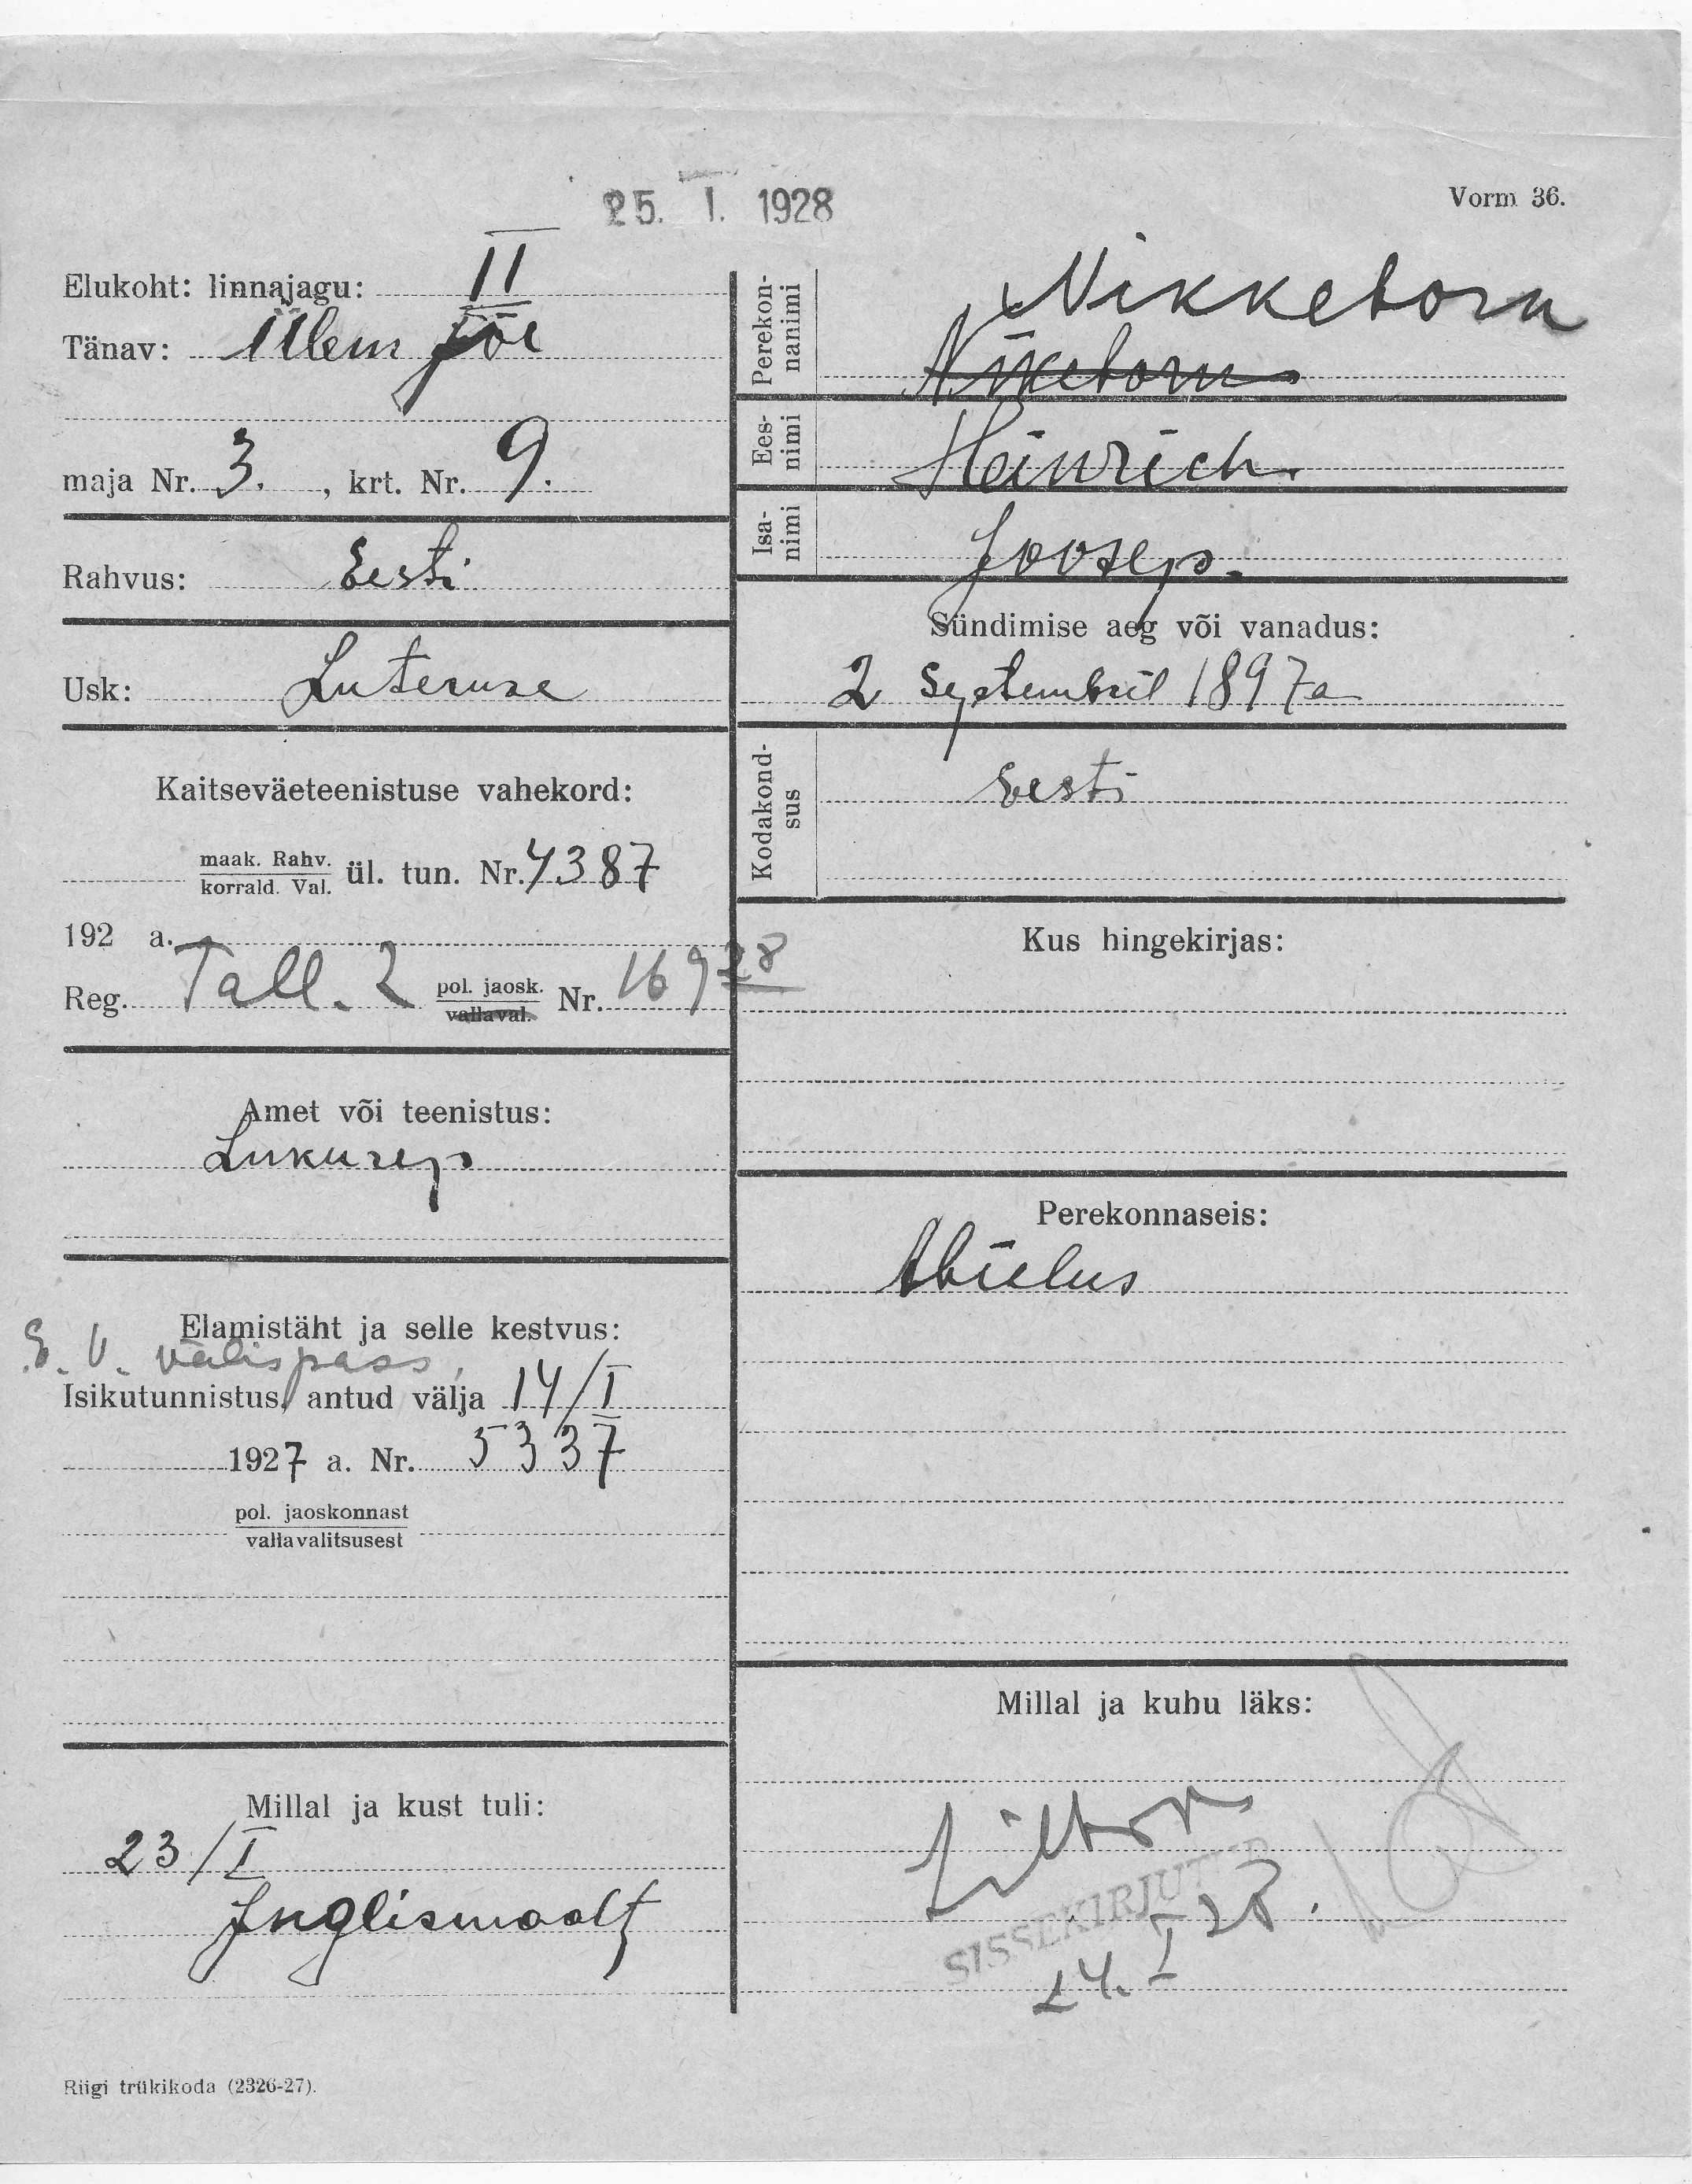 25. I. 1928
Vorm 36.
Elukoht: linnajagu: II
Tänav: Ülem Jõe
maja Nr. 3. , krt. Nr. 9.
Rahvus: Eesti
Usk: Luteruse
Kaitseväeteenistuse vahekord:
maak. Rahv.
korrald. Val.
ül. tun. Nr. 4387
192 a.
Reg. Tall. 2 pol. jaosk. Nr. 16928
vallaval.
Amet või teenistus:
Lukusep
Elamistäht ja selle kestvus:
E. V. välispass
Isikutunnistus, antud välja 14/I
1927 a. Nr. 5337
pol. jaoskonnast
vallavalitsusest
Millal ja kust tuli:
23/I
Inglismaalt
Riigi trükikoda (2326-27).
Perekon-
nanimi
Nikketorn
Niketorn
Ees-
nimi
Heinrich.
Isa-
nimi
Joosep.
Sündimise aeg või vanadus:
2 Septembril 1897a
Kodakond-
sus
Eesti
Kus hingekirjas:
Perekonnaseis:
Abielus
Millal ja kuhu läks:
SISSEKIRJUTUD
24. I 28.